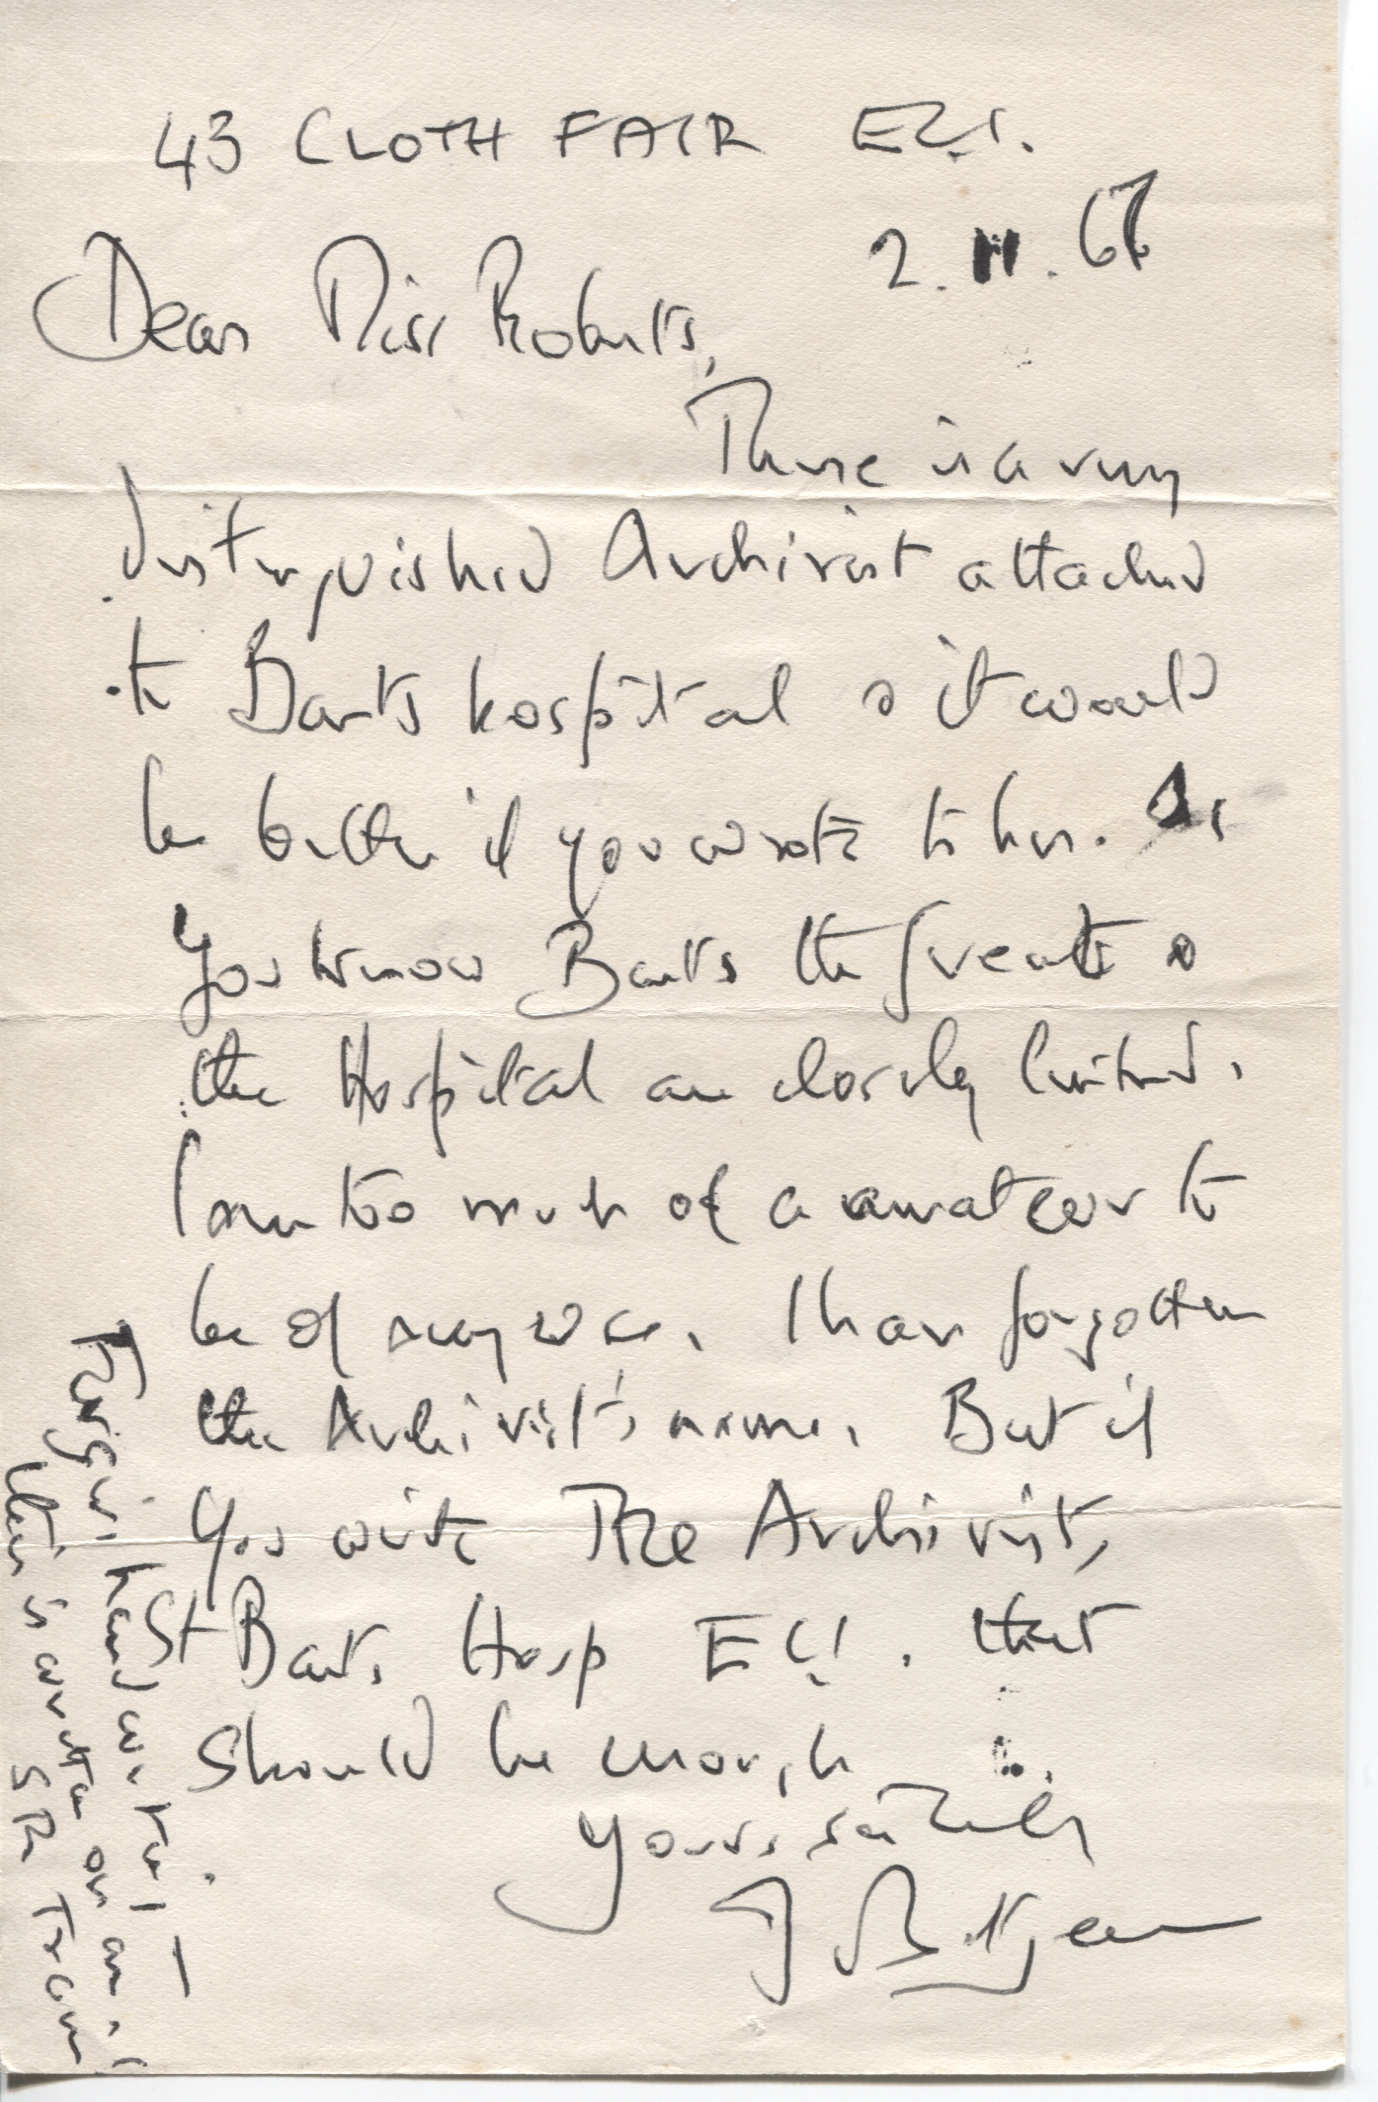 43 CLOTH FAIR EC.1.
2. 11. 67
Dear Miss Roberts,
There is a very
distinguished Archivist attached
to Barts hospital & it would
be better if you wrote to her. As
you know Barts the Great &
the Hospital are closely linked.
I am too much of a amateur to
be of any use. I have forgotten
the Archivist's name. But if
you write The Archivist,
St Barts Hosp EC1. that
should be enough
Yours sincerely
J Betjeman
Forgive handwriting –
this is written on an
SR Train